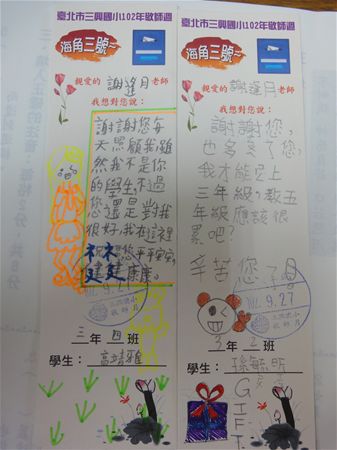 臺北市三興國小102年敬師週
海角三號~
親愛的 謝逢月 老師
我想對您說：
謝謝您每
天照顧我雖
然我不是你
的學生不過
您還是對我
很好，我在這裡
祝您平平安安，
健健康康。
102.9.27
三年四班
學生：高靖雅
臺北市三興國小102年敬師週
海角三號~
親愛的 謝逢月 老師
我想對您說：
謝謝您，
也多虧了您，
我才能史上
三年級，教五
年級應該很
累吧？
辛苦您了
102.9.27
3年2班
學生：孫毓明
GIFT